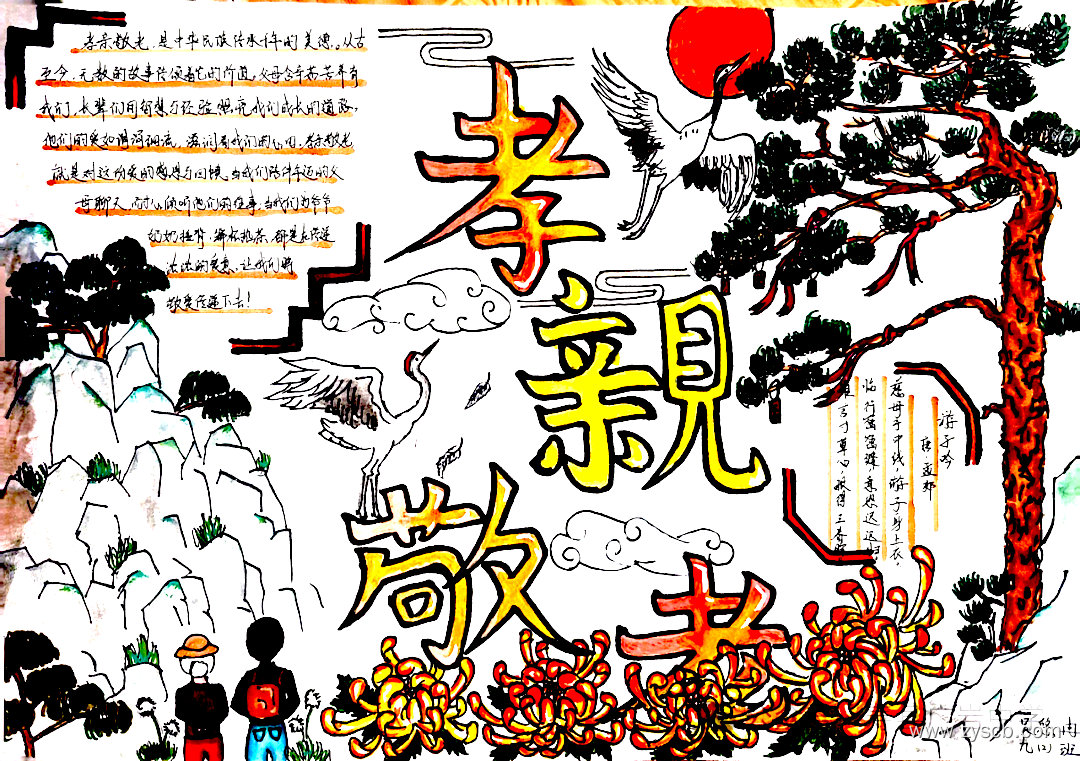 孝亲敬老，是中华民族传承千年的美德。从古
至今，无数的故事传颂着它的价值。父母含辛茹苦养育
我们，长辈们用智慧与经验照亮我们成长的道路，
他们的爱如涓涓细流，滋润着我们的心田。孝亲敬老
就是对这份爱的感恩与回馈。当我们陪伴年迈的父
母聊天，耐心倾听他们的往事，当我们为爷爷
奶奶捶背、
浓浓的爱意，让我们将
下去！
孝
親
敬
老
游子吟
唐·孟郊
慈母手中线，游子身上衣。
临行密密缝，意恐迟迟归。
谁言寸草心，报得三春
www.zyscb.com
九(2)班